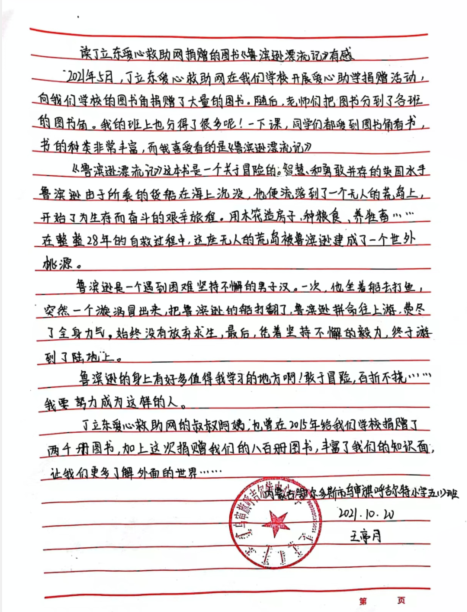 读丁立东爱心救助网捐赠的图书《鲁滨逊漂流记》有感
2021年5月,丁立东爱心救助网在我们学校开展爱心助学捐赠活动,
向我们学校的图书角捐赠了大量的图书。随后,老师们把图书分到了各班
的图书角。我的班上也分得了很多呢!一下课,同学们都爱到图书角看书,
书的种类非常丰富,而我喜爱看的是《鲁滨逊漂流记》
《鲁滨逊漂流记》这本书是一个关于冒险的。智慧和勇敢并存的英国水手
鲁滨逊由于所乘的货船在海上沉没,他便流落到了一个无人的荒岛上,
开始了为生存而奋斗的艰辛旅程。用木花造房子,种粮食、养牲畜……
在整整28年的自救过程中,这座无人的荒岛被鲁滨逊建成了一个世外
桃源。
鲁滨逊是一个遇到困难坚持不懈的男子汉。一次,他坐着船去打鱼,
突然一个漩涡冒出来,把鲁滨逊的船打翻了,鲁滨逊拼命往上游,费尽
了全身力气。始终没有放弃求生,最后,凭着坚持不懈的毅力,终于游
到了陆地上。
鲁滨逊的身上有好多值得我学习的地方啊!敢于冒险,百折不挠……
我要努力成为这样的人。
丁立东爱心救助网的叔叔阿姨,也曾在2015年给我们学校捐赠了
两千册图书,加上这次捐赠我们的八百册图书,丰富了我们的知识面,
让我们更多了解外面的世界……
内蒙古鄂尔多斯市乌审旗呼吉尔特小学五(1)班
2021.10.20
王
第 页